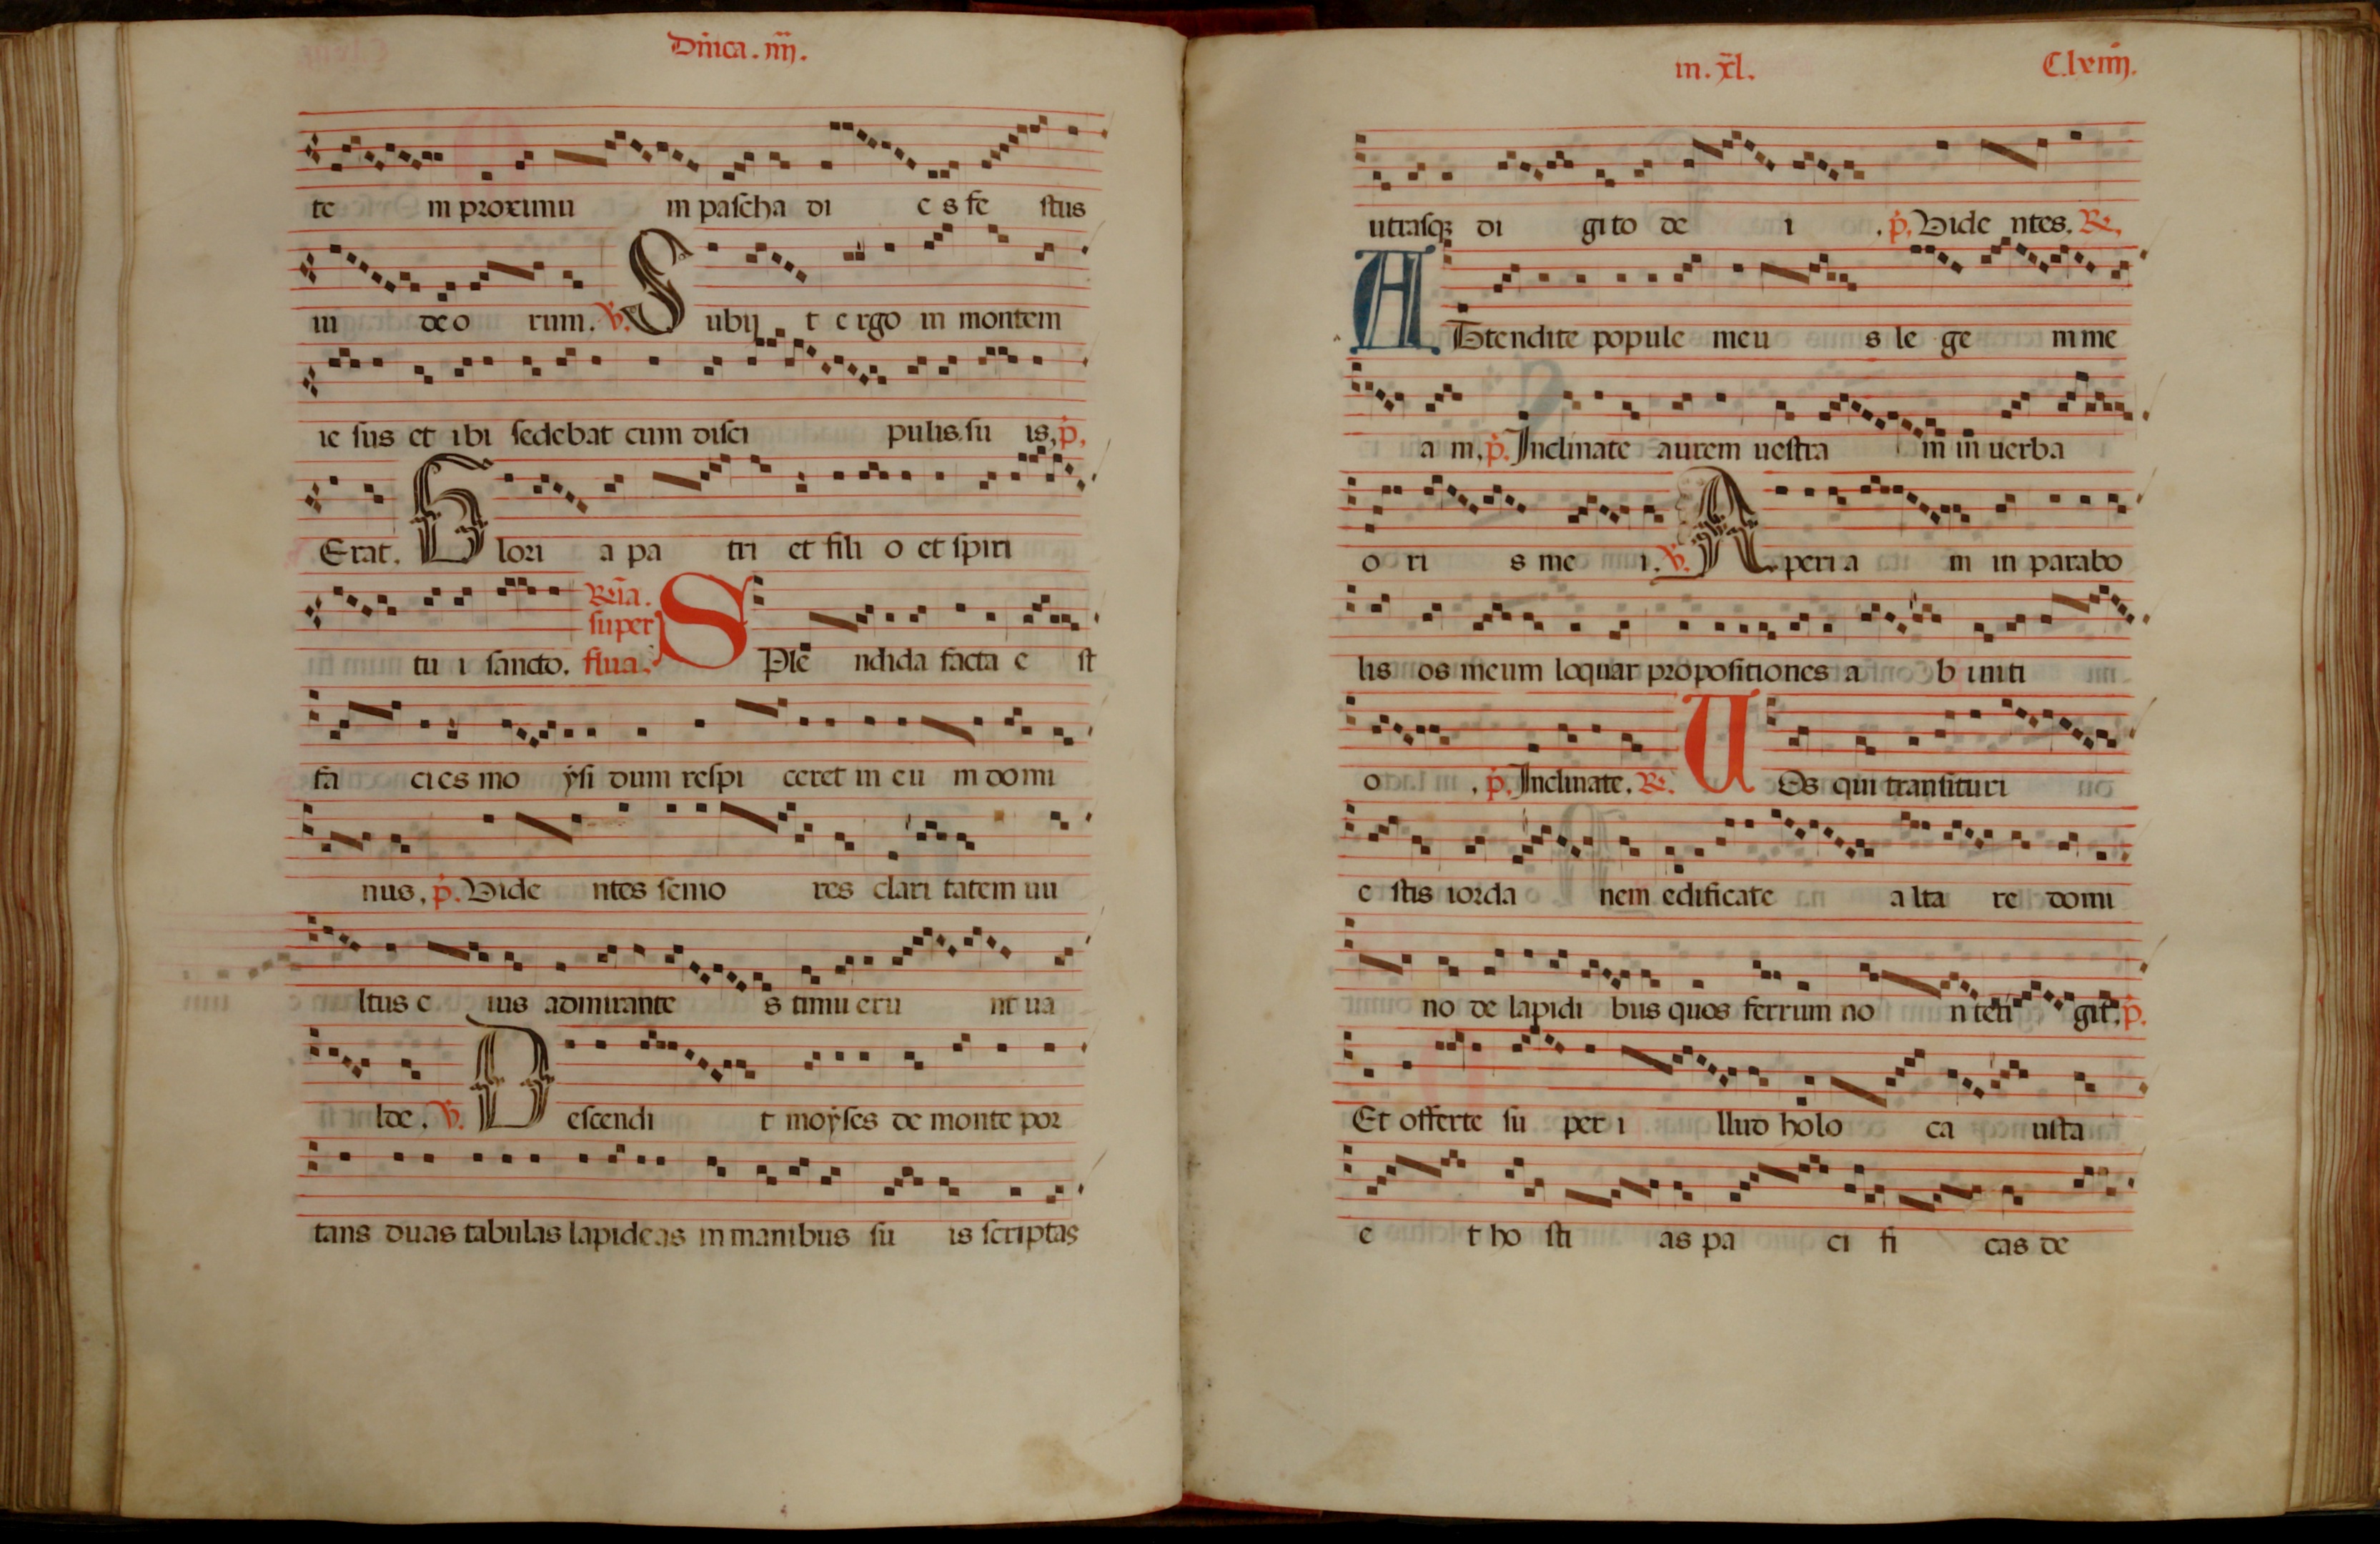 Dn̄ica. iiij.
te in proximu in pascha di e s fe stus
iu deo rum. V. Subijt ergo in montem
ie sus et ibi sedebat cum disci pulis su is, p̄.
Erat. Glori a pa tri et fili o et spiri
tu i sancto. Rn̄ia. super flua. SPle ndida facta e st
fa cies mo ysi dum respi ceret in eu m domi
nus, p̄. Vide ntes senio res clari tatem uu
ltus e ius admirante s timu eru nt ua
lde. V. Descendi t moyses de monte por
tans duas tabulas lapideas in manibus su is scriptas
in. xl.
C.lxiiij.
utrasq; di gito de i . p̄. Vide ntes. R.
ATtendite popule meu s le ge m me
a m, p̄. Inclinate aurem uestra m in uerba
o ri s me i. V. Aperi a m in parabo
lis os meum loquar propositiones a b initi
o . p̄. Inclinate. R. UOs qui transituri
e stis iorda nem edificate alta re domi
no de lapidi bus quos ferrum no n teti git, p̄.
Et offerte su per i llud holo ca usta
e t ho sti as pa ci fi cas de